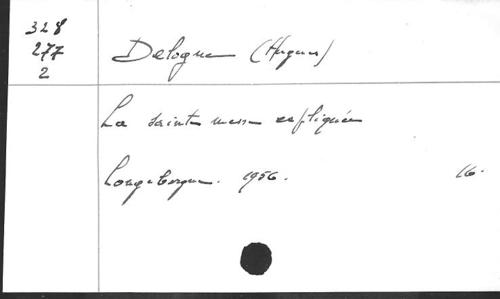 328
277
2
Delogne (Hugues)
La sainte messe expliquée
Longeborgne. 1956. 16.